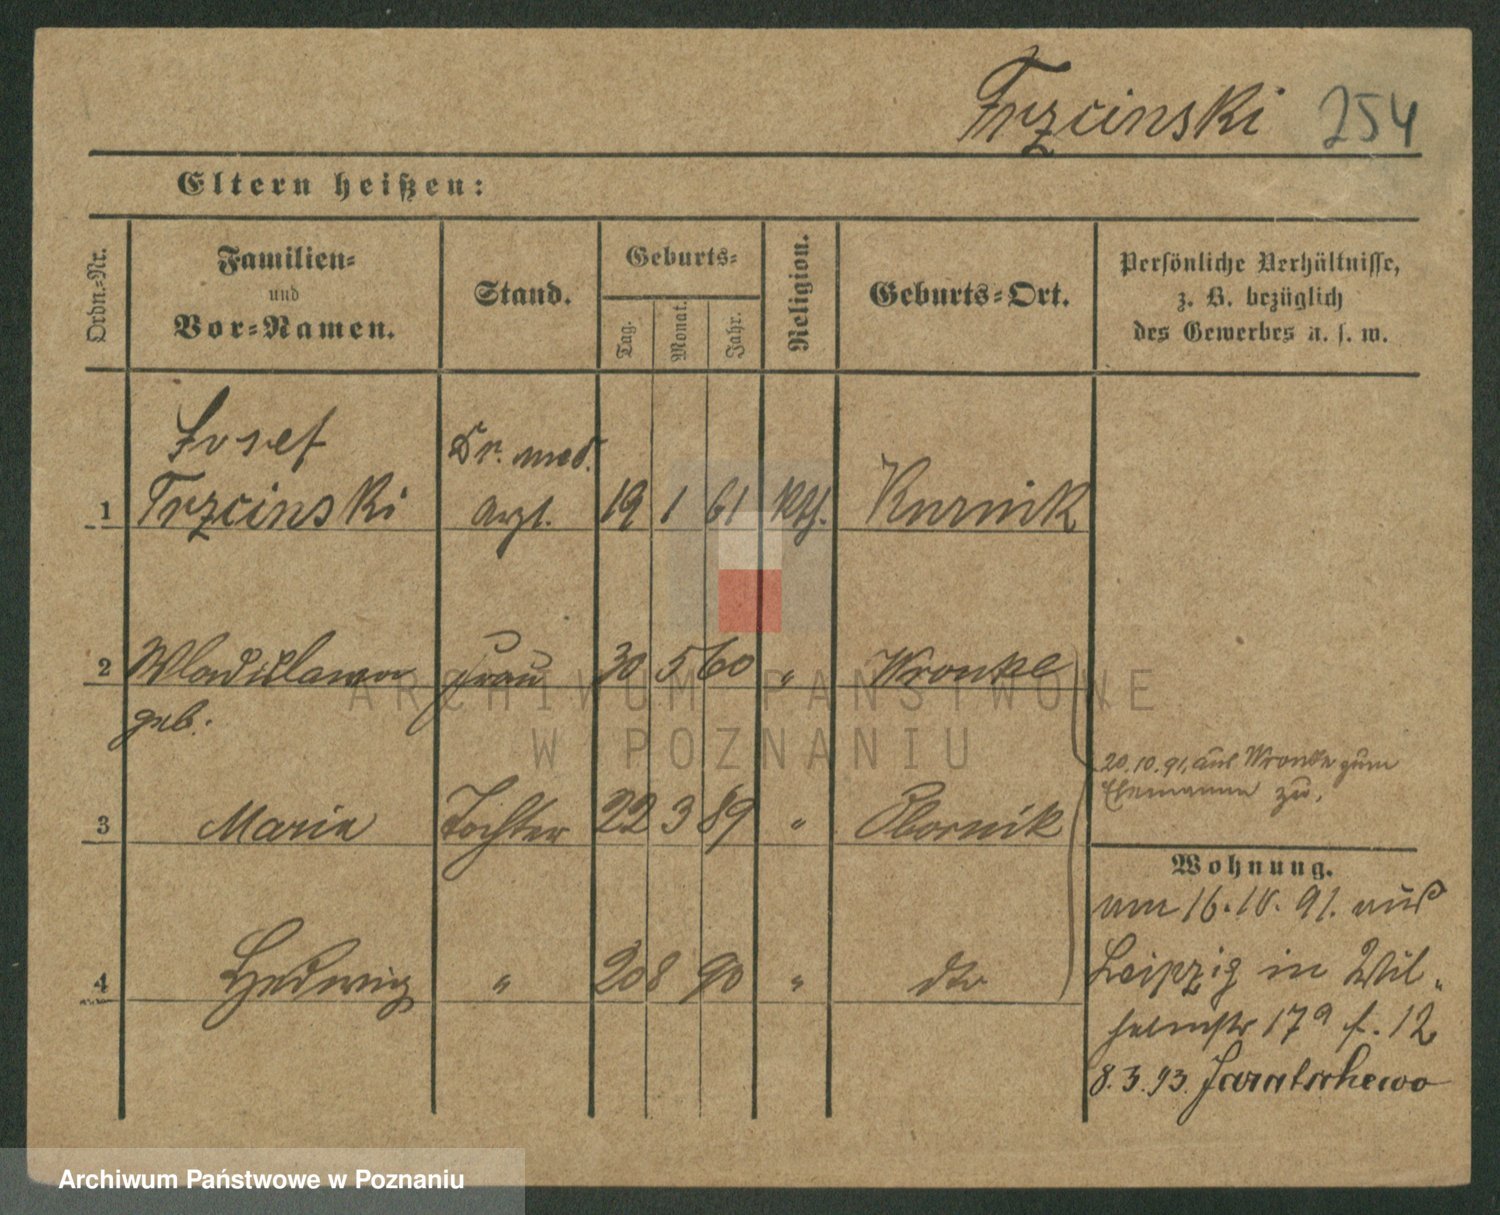 Trzcinski 254
Eltern heißen:
Ordn.-Nr.
Familien-
und
Vor-Namen.
Stand.
Geburts-
Tag.
Monat.
Jahr.
Religion.
Geburts-Ort.
Persönliche Verhältnisse,
z. B. bezüglich
des Gewerbes u. s. w.
Josef Dr. med.
1 Trzcinski Arzt. 19 1 61 kth. Kurnik
2 Wladislawa Frau 30 5 60 " Wronke
geb.
20.10.91. aus Wronke zum
Ehemanne zu.
3 Maria Tochter 22 3 89 " Obornik
Wohnung.
am 16.10.91. aus
4 Hedwig " 20 8 90 " dto
Leipzig in Wil-
helmstr 17a f. 12
8.3.93. Jaratschewo
ARCHIWUM PAŃSTWOWE
W POZNANIU
Archiwum Państwowe w Poznaniu